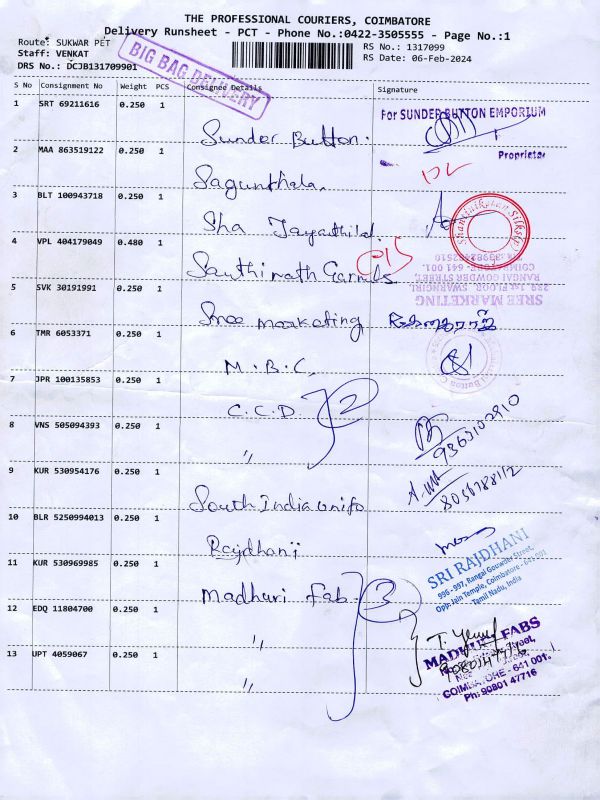 THE PROFESSIONAL COURIERS, COIMBATORE
Delivery Runsheet - PCT - Phone No.:0422-3505555 - Page No.:1
Route: SUKWAR PET
Staff: VENKAT
DRS No.: DCJB131709901
RS No.: 1317099
RS Date: 06-Feb-2024
BIG BAG DELIVERY
S No Consignment No Weight PCS Consignee Details Signature
1 SRT 69211616 0.250 1
Sunder Button.
For SUNDER BUTTON EMPORIUM
Proprietor
2 MAA 863519122 0.250 1
Sagunthala,
3 BLT 100943718 0.250 1
Sha Jayanthilal.
Shanthikiran Silks
4 VPL 404179049 0.480 1
Santhinath Garments
SREE MARKETING
239, 1st FLOOR, SWARNGIRI,
RANGAI GOWDER STREET,
COIMBATORE- 641 001.
5 SVK 30191991 0.250 1
Sree marketing
6 TMR 6053371 0.250 1
M.B.C,
7 JPR 100135853 0.250 1
C.C.D 2
8 VNS 505094393 0.250 1
"
9363102910
9 KUR 530954176 0.250 1
South India unifo
8056788112
10 BLR 5250994013 0.250 1
Rajdhani
SRI RAJDHANI
996 - 997, Rangai Gowder Street,
Opp. Jain Temple, Coimbatore - 641 001
Tamil Nadu, India
11 KUR 530969985 0.250 1
Madhuri Fab. 3
12 EDQ 11804700 0.250 1
"
13 UPT 4059067 0.250 1
"
MADHURI FABS
9080147716
COIMBATORE - 641 001.
Ph: 90801 47716